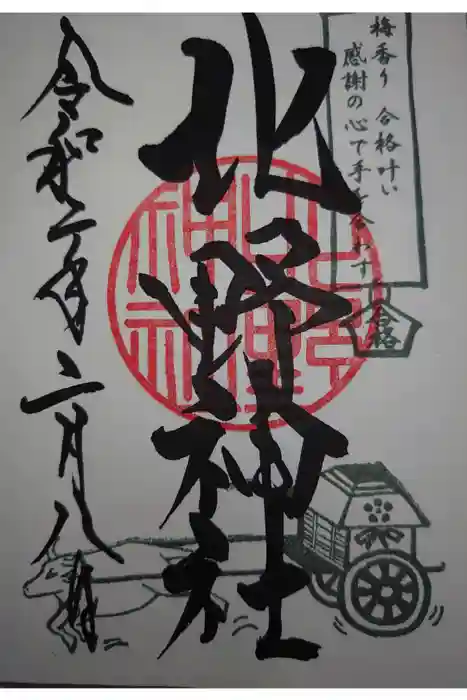 梅香り 合格叶い
感謝の心で手を合わす
合格
北野神社
令和二年二月八日